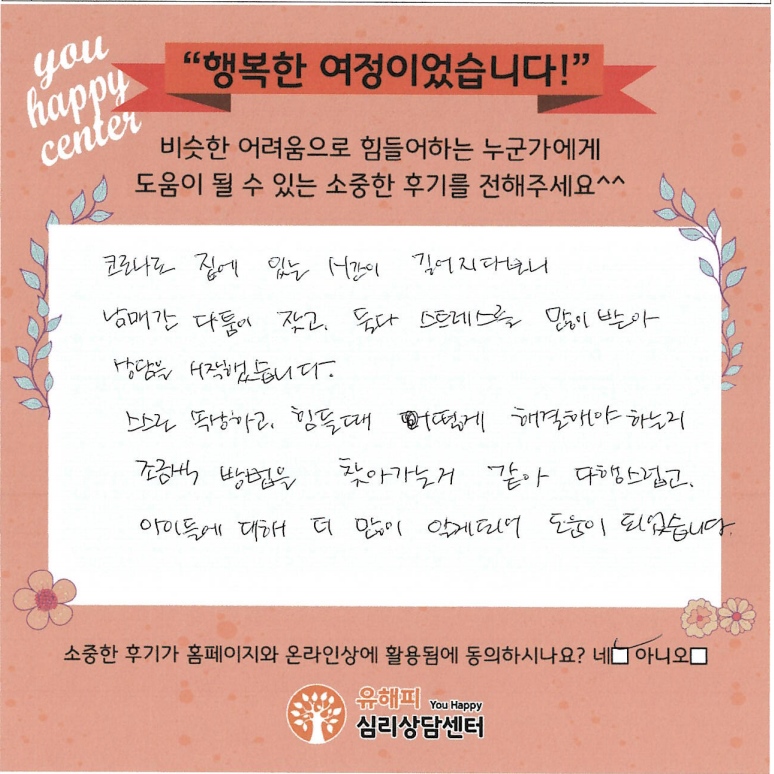 you
happy
center
“행복한 여정이었습니다!”
비슷한 어려움으로 힘들어하는 누군가에게
도움이 될 수 있는 소중한 후기를 전해주세요^^
코로나로 집에 있는 시간이 길어지다보니
남매간 다툼이 잦고, 둘다 스트레스를 많이 받아
상담을 시작했습니다.
스스로 속상하고, 힘들때 어떻게 해결해야 하는지
조금씩 방법을 찾아가는거 같아 다행스럽고,
아이들에 대해 더 많이 알게되어 도움이 되었습니다.
소중한 후기가 홈페이지와 온라인상에 활용됨에 동의하시나요? 네☐ 아니오☐
유해피 You Happy
심리상담센터